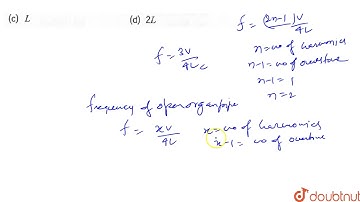 (c) L (d) 2L
f = (2n-1)V / 4L
f = 3V / 4Lc
n = no of harmonics
n-1 = no of overtone
n-1 = 1
n = 2
frequency of open organ pipe
f = xV / 4L
x = no of harmonics
x-1 = no of overtone
doubtnut